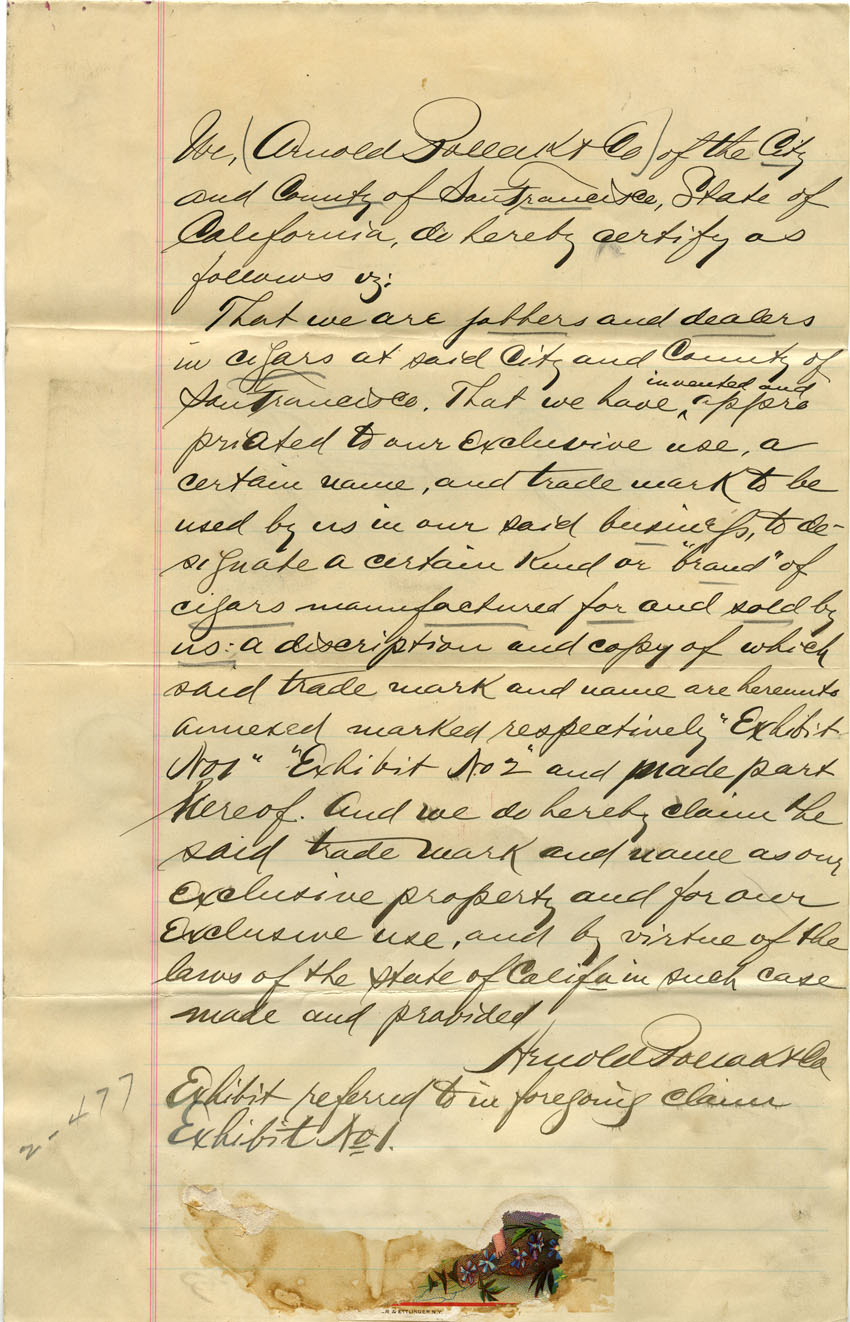 We, (Arnold Pollack & Co) of the City
and County of San Francisco, State of
California, do hereby certify as
follows viz:
That we are jobbers and dealers
in cigars at said City and County of
invented and
San Francisco. That we have ^ appro
priated to our exclusive use, a
certain name, and trade mark to be
used by us in our said business, to de-
signate a certain kind or "brand" of
cigars manufactured for and sold by
us: a discription and copy of which
said trade mark and name are hereunto
annexed marked respectively "Exhibit
No 1" "Exhibit No 2" and made part
hereof. And we do hereby claim the
said trade mark and name as our
exclusive property and for our
Exclusive use, and by virtue of the
laws of the state of Califa in such case
made and provided
Arnold Pollack & Co
Exhibit referred to in foregoing claim
2-477
Exhibit No 1.
R. G. ETTLINGER N.Y.